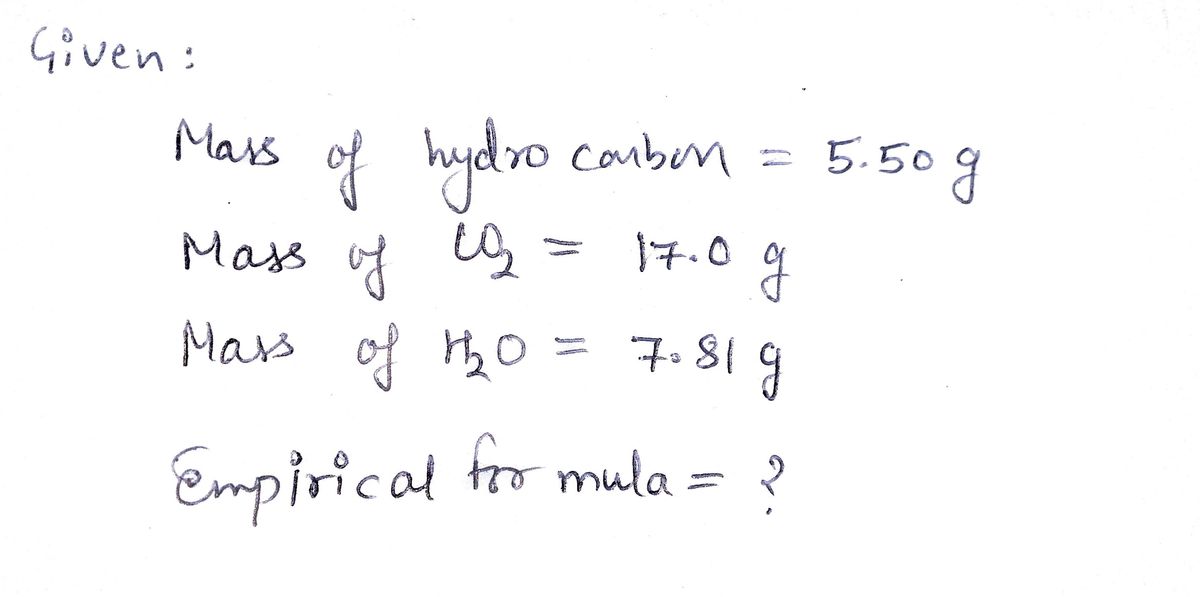 Given :
Mass of hydro carbon = 5.50 g
Mass of CO₂ = 17.0 g
Mass of H₂O = 7.81 g
Empirical for mula = ?